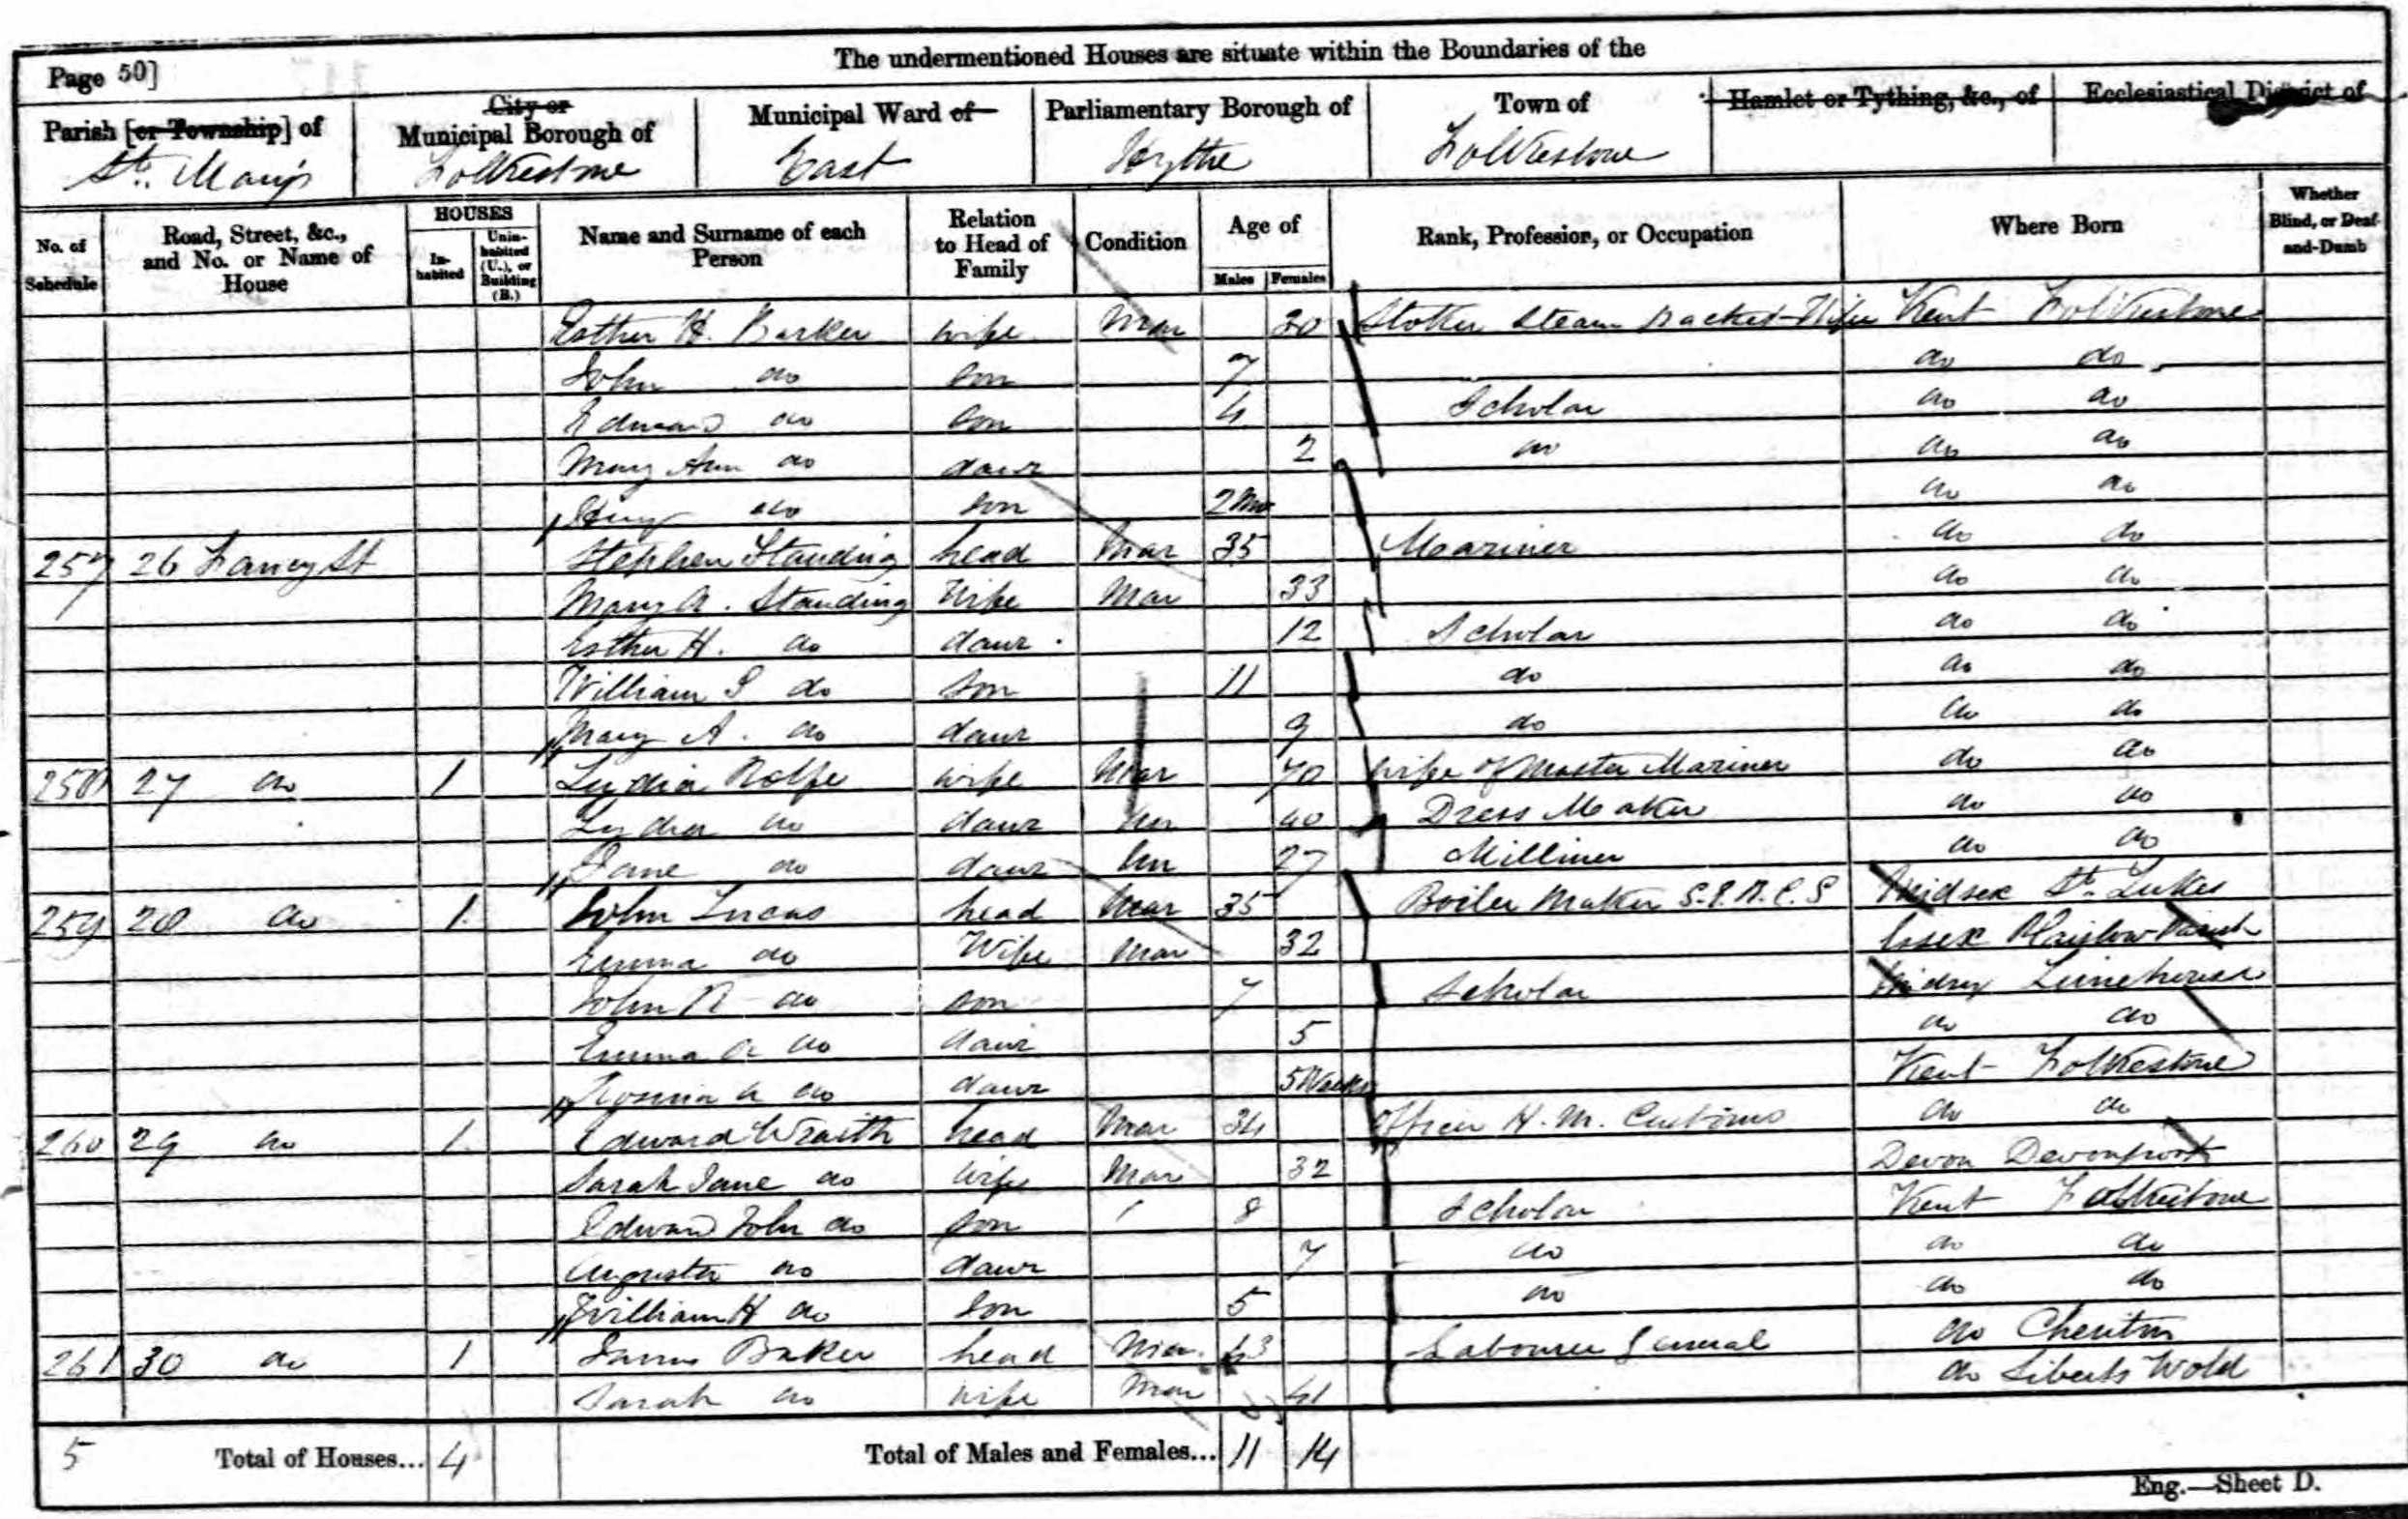 The undermentioned Houses are situate within the Boundaries of the
Page 50]
Parish [or Township] of
St. Mary's
City or
Municipal Borough of
Folkestone
Municipal Ward of
East
Parliamentary Borough of
Hythe
Town of
Folkestone
Hamlet or Tything, &c., of
Ecclesiastical District of
No. of Schedule
Road, Street, &c., and No. or Name of House
HOUSES
In-habited
Unin-habited (U.), or Building (B.)
Name and Surname of each Person
Relation to Head of Family
Condition
Age of
Males Females
Rank, Profession, or Occupation
Where Born
Whether Blind, or Deaf-and-Dumb
Esther H. Barker wife Mar 30 Stoker Steam Packet Wife Kent Folkestone
John do son 7 do do
Edward do son 4 Scholar do do
Mary Ann do daur 2 do do do
do son 2 Mo do do
257 26 St Stephen Standing head Mar 35 Mariner do do
Mary A. Standing Wife Mar 33 do do
Esther H. do daur 12 Scholar do do
William S do son 11 do do do
Mary A. do daur 9 do do do
258 27 do 1 Lydia Rolfe wife Mar 70 wife of Master Mariner do do
Lydia do daur Un 40 Dress Maker do do
Jane do daur Un 27 Milliner do do
259 28 do 1 John Lucas head Mar 35 Boiler Maker Midsex St. Lukes
Emma do Wife Mar 32 Essex Plaistow Parish
John R do son 7 Scholar Midsex Limehouse
Emma do daur 5 do do
Rosina a do daur 5 Weeks Kent Folkestone
260 29 do 1 Edward Wraith head Mar 34 Officer H.M. Customs do do
Sarah Jane do wife Mar 32 Devon Devonport
Edward John do son 8 Scholar Kent Folkestone
Augusta do daur 7 do do do
William H do son 5 do do do
261 30 do 1 James Baker head Mar 43 Labourer General do Cheriton
Sarah do wife Mar 41 do Siberts Wold
5 Total of Houses... 4 Total of Males and Females... 11 14
Eng.—Sheet D.